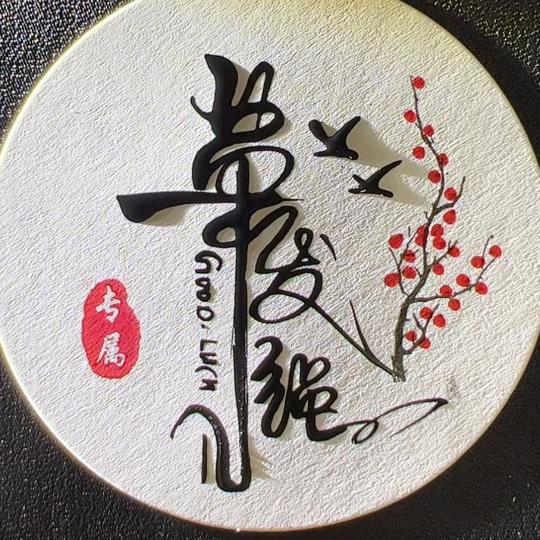 发强
GOOD. LUCK
专属